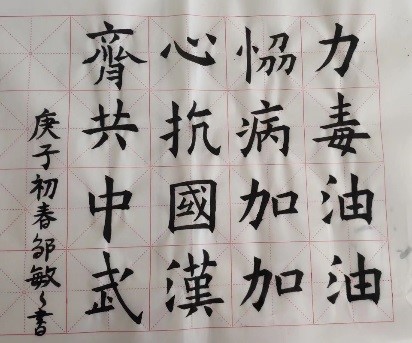 齊心恊力
共抗病毒
中國加油
武漢加油
庚子初春邹敏々書